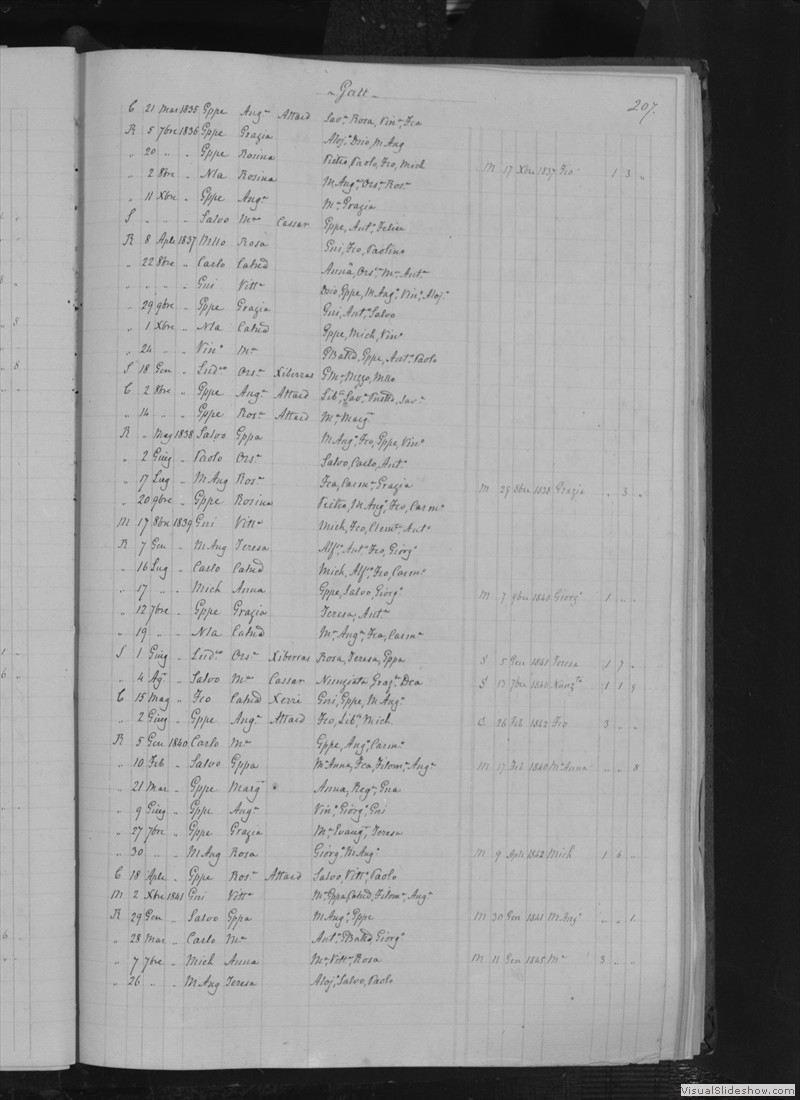 Galt
207.
C 21 Mar 1835 Gppe Angª Attard Savª Rosa, Vinª, Fca
R 5 7bre 1836 Gppe Grazia Alojº, Dnio, M Ang
" 20 " " Gppe Rosina Pietro, Paolo, Fco, Mich M 17 Xbre 1837 Fco 1 3 "
" 2 8bre " Nla Rosina M Angª, Orsª, Rosª
" 11 Xbre " Gppe Angª Mª Grazia
S " " " Salvo Mª Cassar Gppe, Antº, Felice
R 8 Aple 1837 Mllo Rosa Gni, Fco, Paolino
" 22 8bre " Carlo Catnd Anna, Orsª, Mª Antª
" " " " Gni Vittª Dnio, Gppe, M Angº, Vinº, Alojº
" 29 9bre " Gppe Grazia Gni, Antº, Salvo
" 1 Xbre " Nla Catnd Gppe, Mich, Vinº
" 24 " " Vinº Mª GBatta, Gppe, Antº, Paolo
S 18 Gen " Orsª Xiberras
C 2 8bre " Gppe Angª Attard
" 14 " " Gppe Rosª Attard Mª Margª
R " Mag 1838 Salvo Gppa M Angº, Fco, Gppe, Vinº
" 2 Giug " Paolo Orsª Salvo, Carlo, Antº
" 17 Lug " M Ang Rosª Fca, Carmª, Grazia M 29 8bre 1838 Grazia " 3 "
" 20 9bre " Gppe Rosina Pietro, M Angº, Fco, Carmº
M 17 8bre 1839 Gni Vittª Mich, Fco, Clemº, Antº
R 7 Gen " M Ang Teresa Alfº, Antº, Fco, Giorgº
" 16 Lug " Carlo Catnd Mich, Alfº, Fco, Carmº
" 17 " " Mich Anna Gppe, Salvo, Giorgº M 7 9bre 1840 Giorgº 1 " "
" 12 7bre " Gppe Grazia Teresa, Antª
" 19 " " Nla Catnd Mª Angª, Fca, Carmª
S 1 Giug " Orsª Xiberras Rosa, Teresa, Gppa S 5 Gen 1841 Teresa 1 7 "
" 4 Agº " Salvo Mª Cassar Nunziata, Grazª, Dca S 13 7bre 1840 Nunzta 1 1 9
C 15 Mag " Fco Catnd Xerri Gni, Gppe, M Angº
" 2 Giug " Gppe Angª Attard Fco, Libº, Mich C 26 Feb 1842 Fco 3 " "
R 5 Gen 1840 Carlo Mª Gppe, Angº, Carmº
" 10 Feb " Salvo Gppa Mª Anna, Fca, Filomª, Angª M 17 Feb 1840 Mª Anna " " 8
" 21 Mar " Gppe Margª Anna, Regª, Gna
" 9 Giug " Gppe Angª Vinº, Giorgº, Gni
" 27 7bre " Gppe Grazia Mª Evangª, Teresa
" 30 " " M Ang Rosa Giorgº, M Angº M 9 Aple 1842 Mich 1 6 "
C 18 Aple " Gppe Rosª Attard Salvo, Vittº, Paolo
M 2 Xbre 1841 Gni Vittª Mª Gppa, Catnd, Filomª, Angª
R 29 Gen " Salvo Gppa M Angº, Gppe M 30 Gen 1841 M Angº " " 1
" 28 Mar " Carlo Mª Antº, GBatta, Giorgº
" 7 7bre " Mich Anna Mª Vittª, Rosa M 11 Gen 1845 Mª 3 " "
" 26 " " M Ang Teresa Alojº, Salvo, Paolo
VisualSlideshow.com